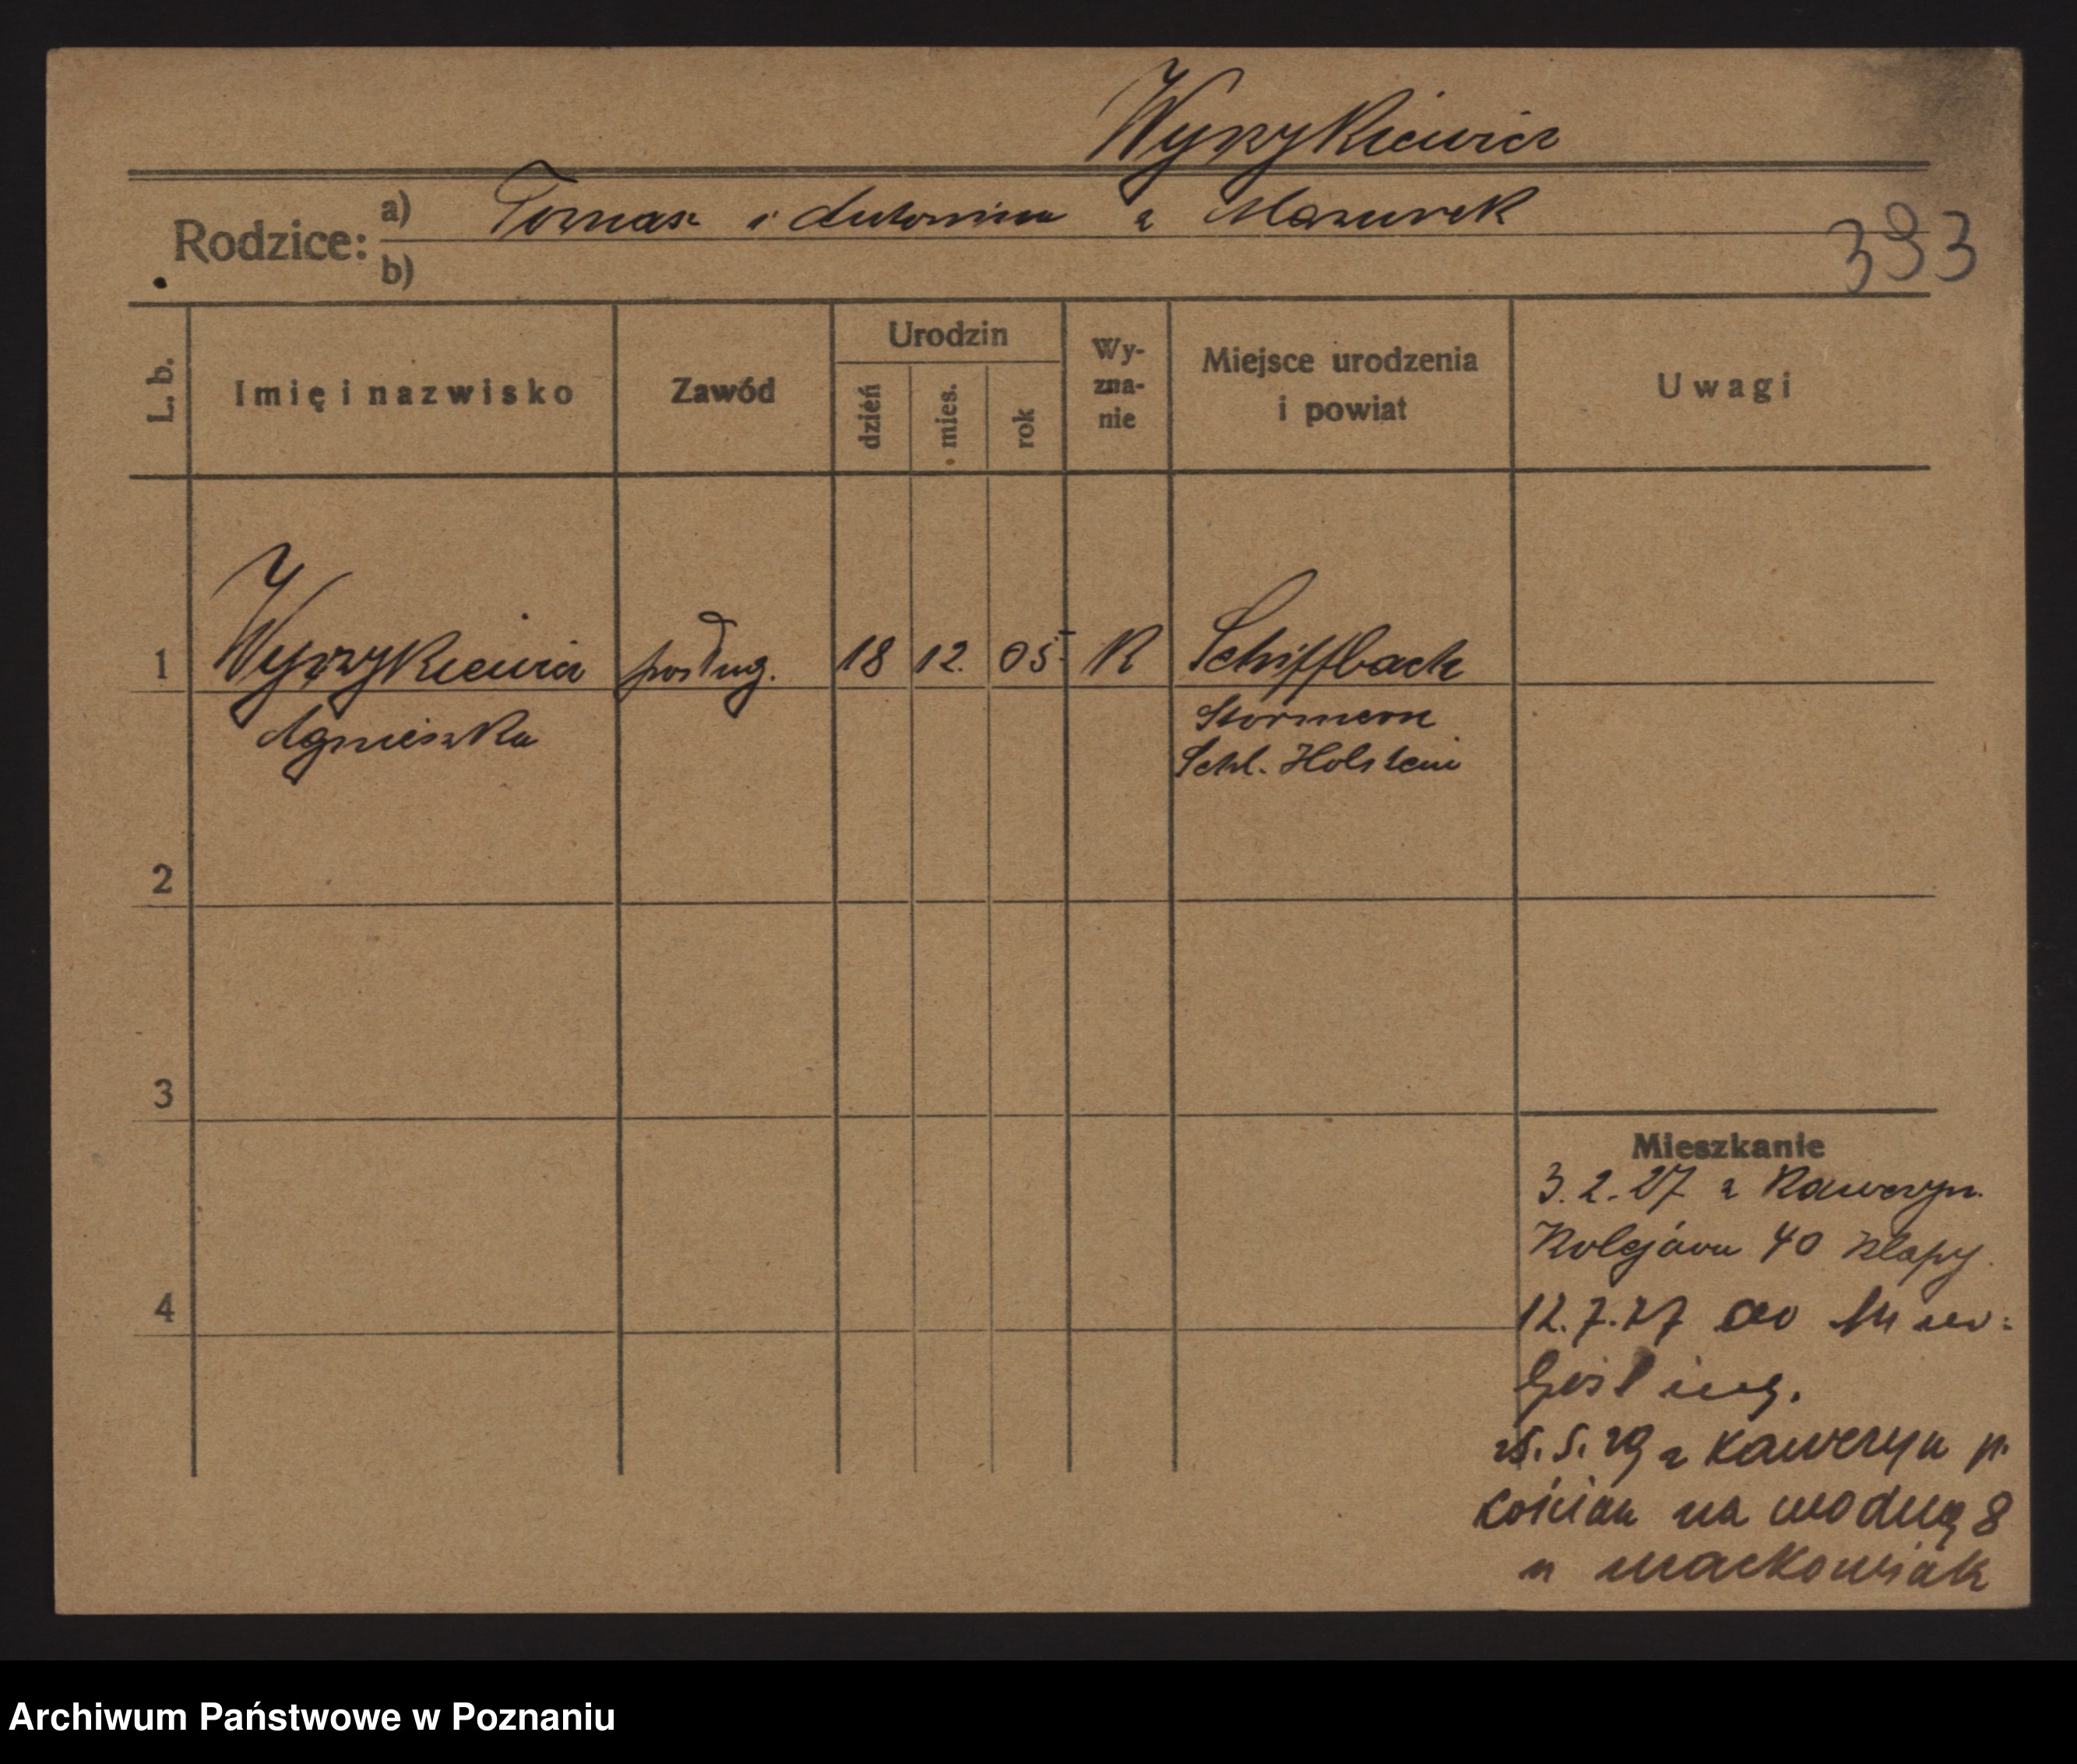 Wyrzykiewicz
Rodzice:
a) Tomasz i Antonina z Mazurek
b)
393
L. b.
Imię i nazwisko
Zawód
Urodzin
dzień
mies.
rok
Wy-
zna-
nie
Miejsce urodzenia
i powiat
Uwagi
1 Wyrzykiewicz posług. 18 12. 05 R Schiffbach
Agnieszka
Stormarn
Schl. Holstein
2
3
4
Mieszkanie
3.2.27 z Kawczyn.
Kolejowa 40 Klapy
12.7.27 do
Goślinę.
25.5.29 z Kawczyn p.
Kościan na wodną 8
u Maćkowiak
Archiwum Państwowe w Poznaniu